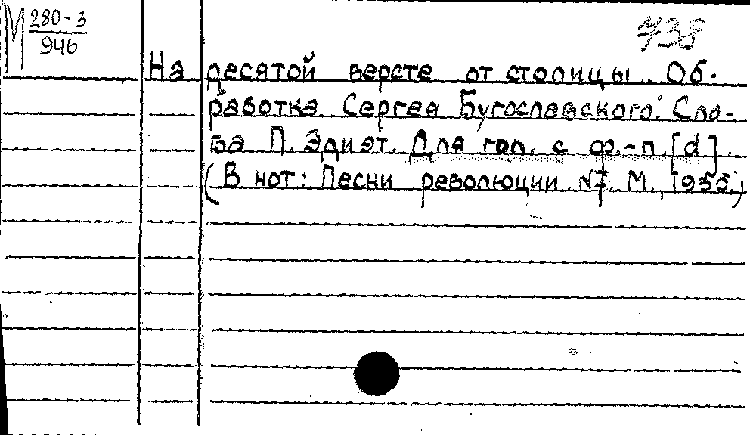 М 280-3
946
738
На десятой версте от столицы. Об-
работка Сергея Бугославского. Сло-
ва П. Эдиет. Для гол. с ф.-п. [d]
(В нот: Песни революции №7. М., 1933.)